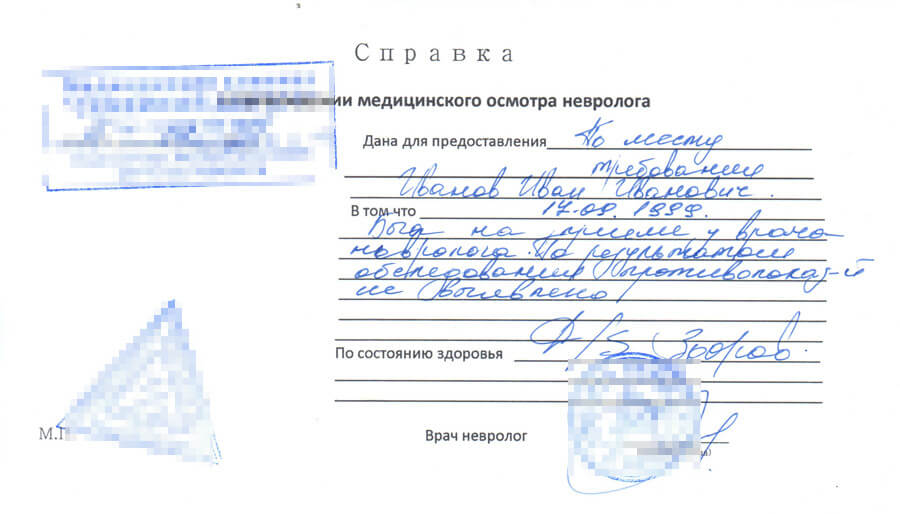 Справка
ии медицинского осмотра невролога
Дана для предоставления По месту
требования
Иванов Иван Иванович.
В том что 17.09.1999.
Был на приеме у врача
невролога. По результатам
обследования противопоказ-й
не выявлено
По состоянию здоровья Здоров.
М.П
Врач невролог